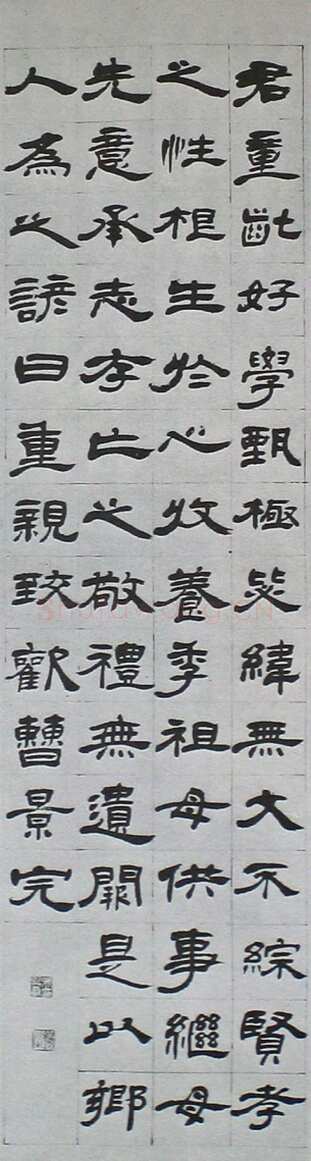 君童齔好學甄極毖緯無文不綜賢孝
之性根生於心收養季祖母供事繼母
先意承志存亡之敬禮無遺闕是以鄉
人為之諺曰重親致歡曹景完